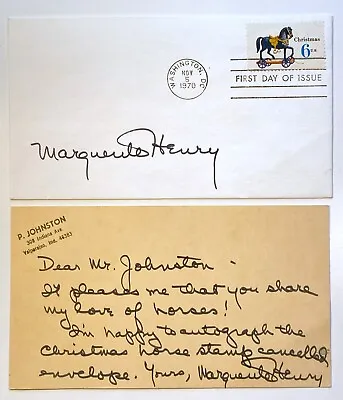 Christmas
6 U.S.
WASHINGTON, DC
NOV
5
1970
FIRST DAY OF ISSUE
Marguerite Henry
P. JOHNSTON
309 Indiana Ave
Valparaiso, Ind. 46383
Dear Mr. Johnston -
It pleases me that you share
my love of horses!
I'm happy to autograph the
Christmas horse stamp cancelled
envelope. Yours, Marguerite Henry